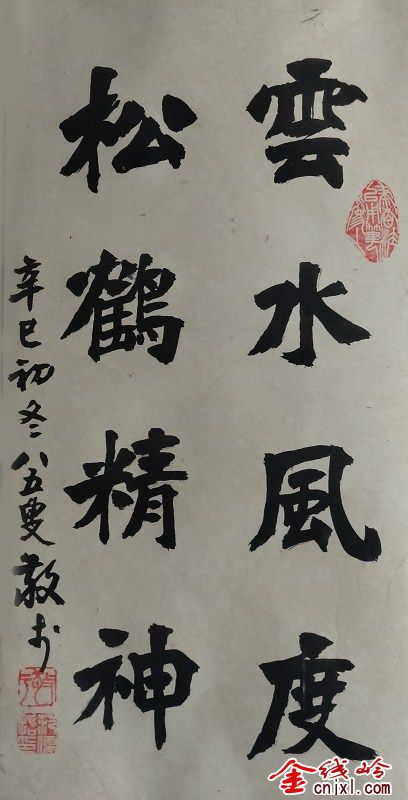 雲水風度
松鶴精神
辛巳初冬八五叟敬书
金线岭
cnjxl.com